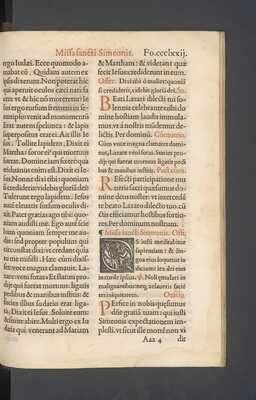 Missa sancti Simeonis. Fo.ccclxxij.
ergo Iudæi. Ecce quomodo a-
mabat eũ. Quidam autem ex
ipsis dixerunt. Non poterat hic
qui aperuit oculos cæci nati fa-
cere vt & hic nõ moreretur? Ie
sus ergo rursum fremens in se-
venit ad monumentũ
erat autem spelunca : & lapis
superpositus erat ei. Ait illis Ie
sus : Tollite lapidem. Dixit ei
Martha
fuerat. Domine iam fœtet: qua
triduanus enim est. Dixit ei Ie-
sus. Nonne dixi tibi : quoniam
si credideris: videbis gloriã dei?
Tulerunt ergo lapidem. Iesus
autem eleuatis sursum oculis di
xit. Pater gratias ago tibi: quo-
niam audisti me. Ego autẽ scie
bam quoniam semper me au-
dis : sed propter populum qui
circunstat dixi: vt credant quia
tu me misisti. Hæc cum dixis-
set: voce magna clamauit. Laza
re: veni foras. Et statim prodijt
qui fuerat mortuus : ligatus
pedibus & manibus institis: &
facies illius sudario erat liga-
ta. Dixit eis Iesus. Soluite eum:
& sinite abire. Multi ergo ex Iu
dæis qui venerant ad Mariam
& Martham : & viderant quæ
fecit Iesus: crediderunt in eum.
Offer. Dixi tibi o mulier: quoniã
si credideris, videbis gloriã dei. Se.
BEati Lazari dilecti tui so-
lennia celebrantes:ibi do
mine hostiam laudis immola-
mus, vt a nostris miseriis
liberemur. Per dominũ. Cõmunio.
Cum voce magna clamaret domi-
nus, Lazare veni foras: statim pro-
dijt qui fuerat mortuus ligatis pedi
bus & manibus institis. Post com.
REfecti participatione mu
neris sacri quæsumus do-
mine deus noster: vt interceden
te beato Lazaro dilecto tuo: cũ
ctis efficiamur hostibus fortio-
res. Per dominum nostrum.
¶ Missa sancti Simeonis. Offi.
OS iusti meditabitur
sapientiam : & lin-
gua eius loquetur iu
dicium: lex dei eius
in corde ipsius. ps. Noli æmulari in
malignantibus: neq; zelaueris faciẽ
tes iniquitatem. Oratio.
PErfice in nobis quæsumus
dñe gratiã tuam : qui iusti
Simeonis expectationem im-
plesti. vt sicut ille morẽ non vi
Aaa 4 dit